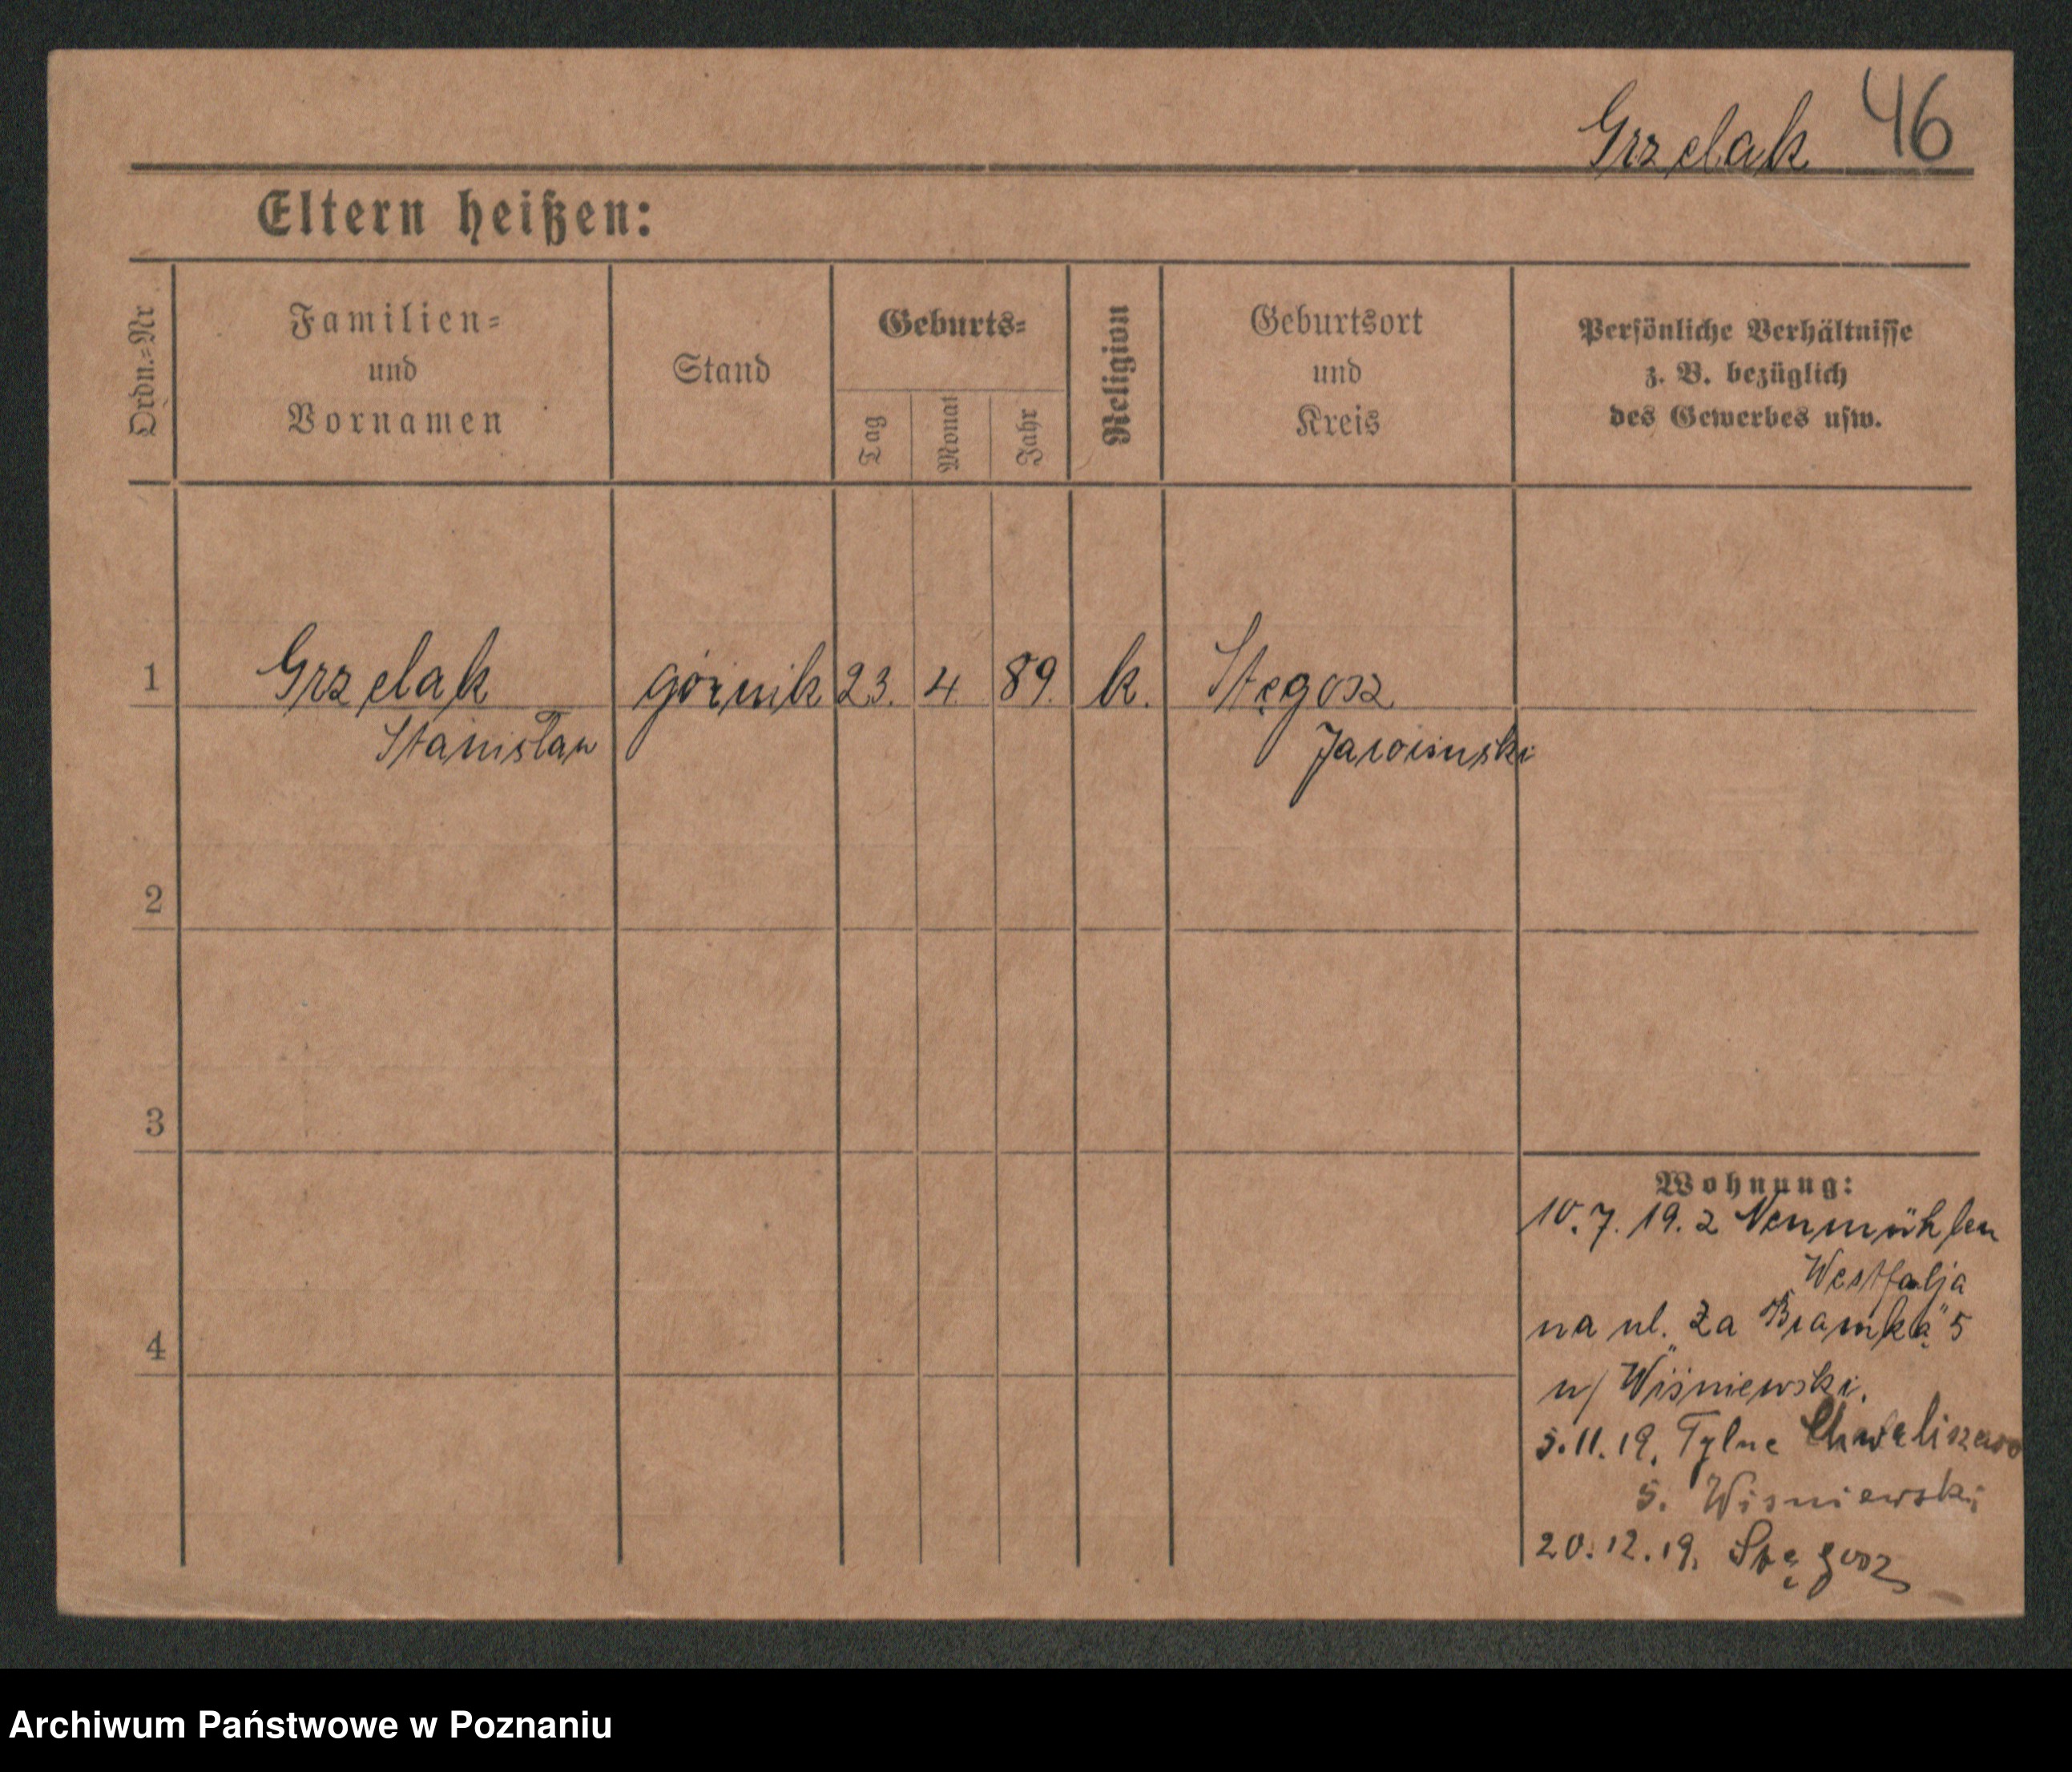 Grzelak 46
Eltern heißen:
Ordn.=Nr
Familien=
und
Vornamen
Stand
Geburts=
Tag
Monat
Jahr
Religion
Geburtsort
und
Kreis
Persönliche Verhältnisse
z. B. bezüglich
des Gewerbes usw.
1 Grzelak górnik 23. 4. 89. k. Stęgosz
Stanisław
2
3
4
Wohnung:
10. 7. 19. z Neumühlen
Westfalja
na ul. „Za Bramką" 5
u/ Wiśniewski.
5. 11. 19. Tylne Chwaliszewo
5. Wisniewski
20. 12. 19. Stęgosz
Archiwum Państwowe w Poznaniu